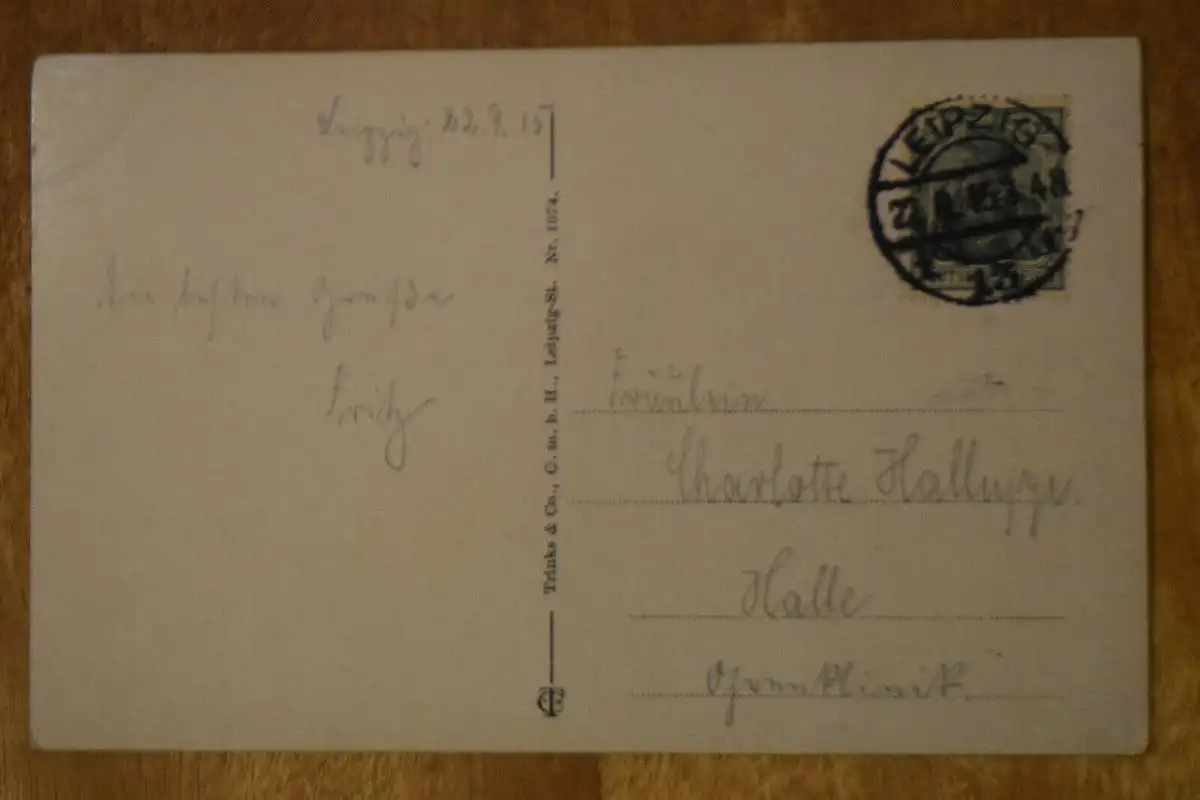 Leipzig. 22.9.15
Die besten Grüße
Fritz
Trinks & Co., G. m. b. H., Leipzig-St. Nr. 1074.
LEIPZIG
13
Fräulein
Charlotte
Halle
Ohrenklinik